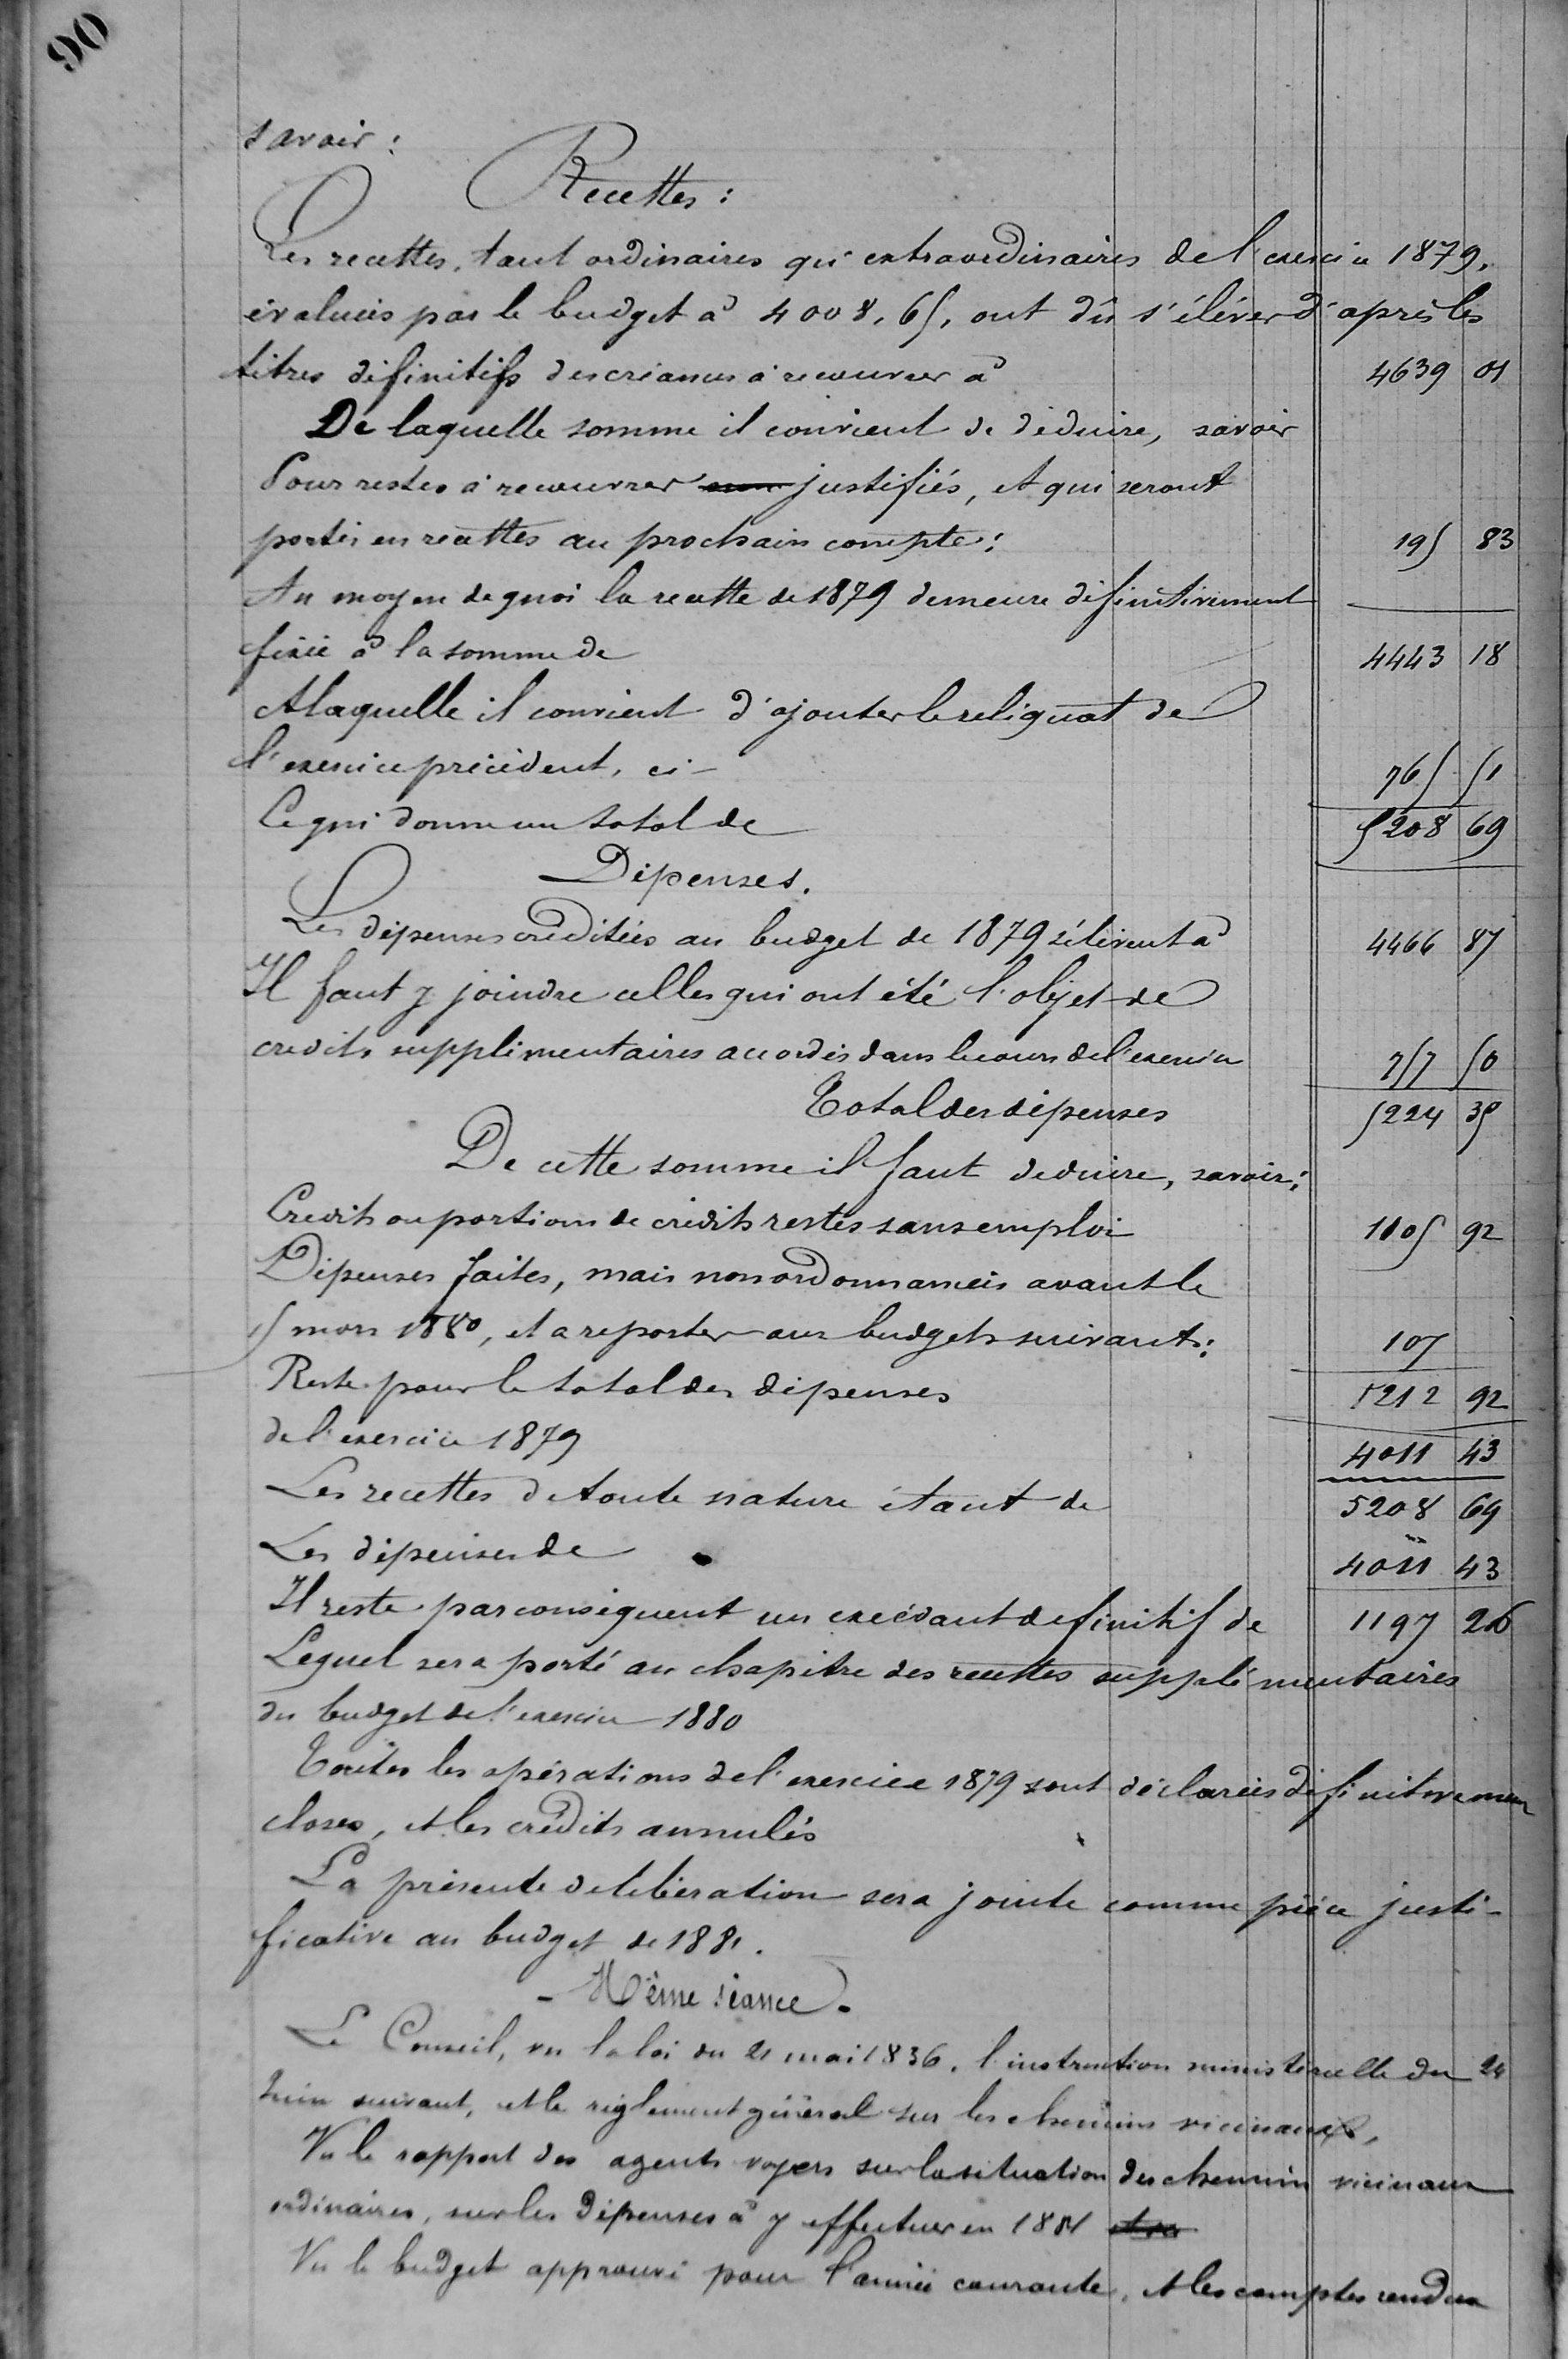 90
savoir :
Recettes :
Les recettes, tant ordinaires qu'extraordinaires de l'exercice 1879,
évaluées par le budget à 4008,65, ont dû s'éléver d'après les
titres définitifs des créances à recouvrer à 4639 01
De laquelle somme il convient de déduire, savoir
Pour restes à recouvrer ~~non~~ justifiés, et qui seront
portés en recettes au prochain compte : 195 83
Au moyen de quoi la recette de 1879 demeure définitivement
fixée à la somme de 4443 18
A laquelle il convient d'ajouter le reliquat de
l'exercice précédent, ci - 765 51
Ce qui donne un total de 5208 69
Dépenses.
Les dépenses créditées au budget de 1879 s'élèvent à 4466 87
Il faut y joindre celles qui ont été l'objet de
credits supplémentaires accordés dans le cours de l'exercice 757 50
Total des dépenses 5224 35
De cette somme il faut deduire, savoir :
Credits ou portions de crédits restés sans emploi 1105 92
Dépenses faites, mais non ordonnancées avant le
15 mars 1880, et a reporter aux budgets suivants : 107
Reste pour le total des dépenses 1212 92
de l'exercice 1879 4011 43
Les recettes de toute nature étant de 5208 69
Les dépenses de 4011 43
Il reste par conséquent un excédant definitif de 1197 26
Lequel sera porté au chapitre des recettes supplémentaires
du budget de l'exercice 1880
Toutes les opérations de l'exercice 1879 sont déclarées définitivemen
closes, et les crédits annulés
La présente deliberation sera jointe comme pièce justi-
ficative au budget de 1881.
- Même séance -
Le Conseil, vu la loi du 21 mai 1836, l'instruction ministérielle du 24
Juin suivant, et le règlement général sur les chemins vicinaux,
Vu le rapport des agents voyers sur la situation des chemins vicinaux
ordinaires, sur les dépenses à y effectuer en 1881
Vu le budget approuvé pour l'année courante, et les comptes rendus